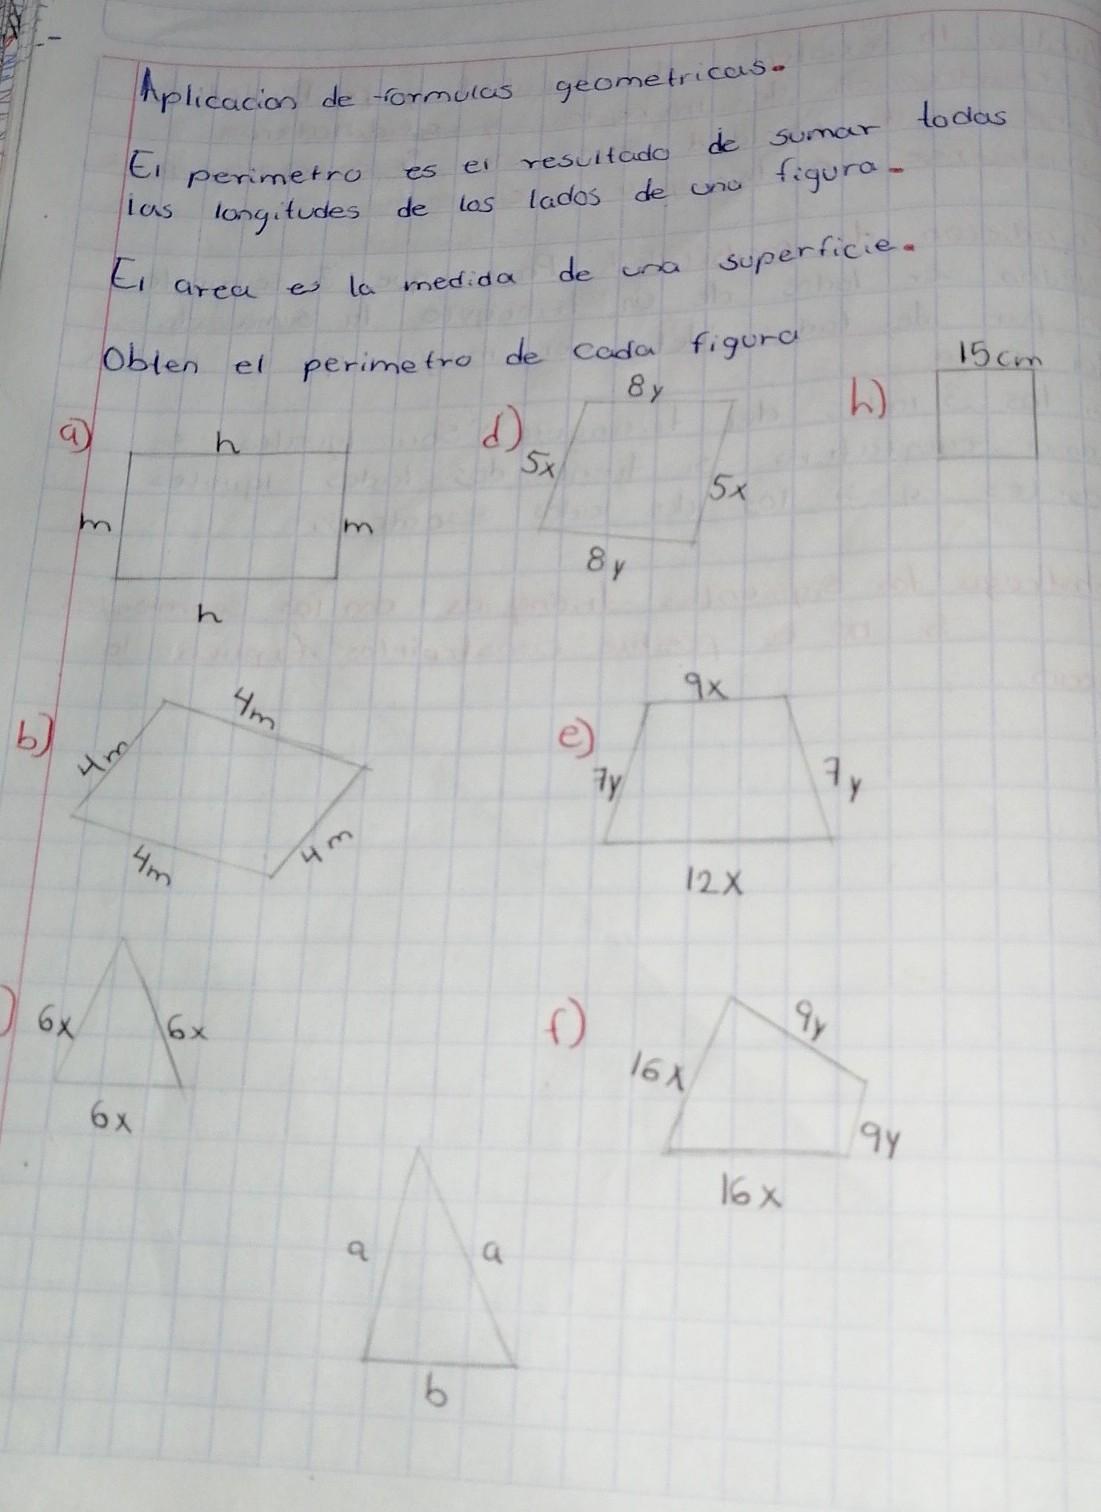 Aplicacion de formulas geometricas.
El perimetro es el resultado de sumar todas
las longitudes de los lados de una figura.
El area es la medida de una superficie.
Obten el perimetro de cada figura
a)
h
m
m
h
d)
8y
5x
5x
8y
h)
15cm
b)
4m
4m
4m
4m
e)
9x
7y
7y
12x
)
6x
6x
6x
f)
9y
16x
9y
16x
a
a
b